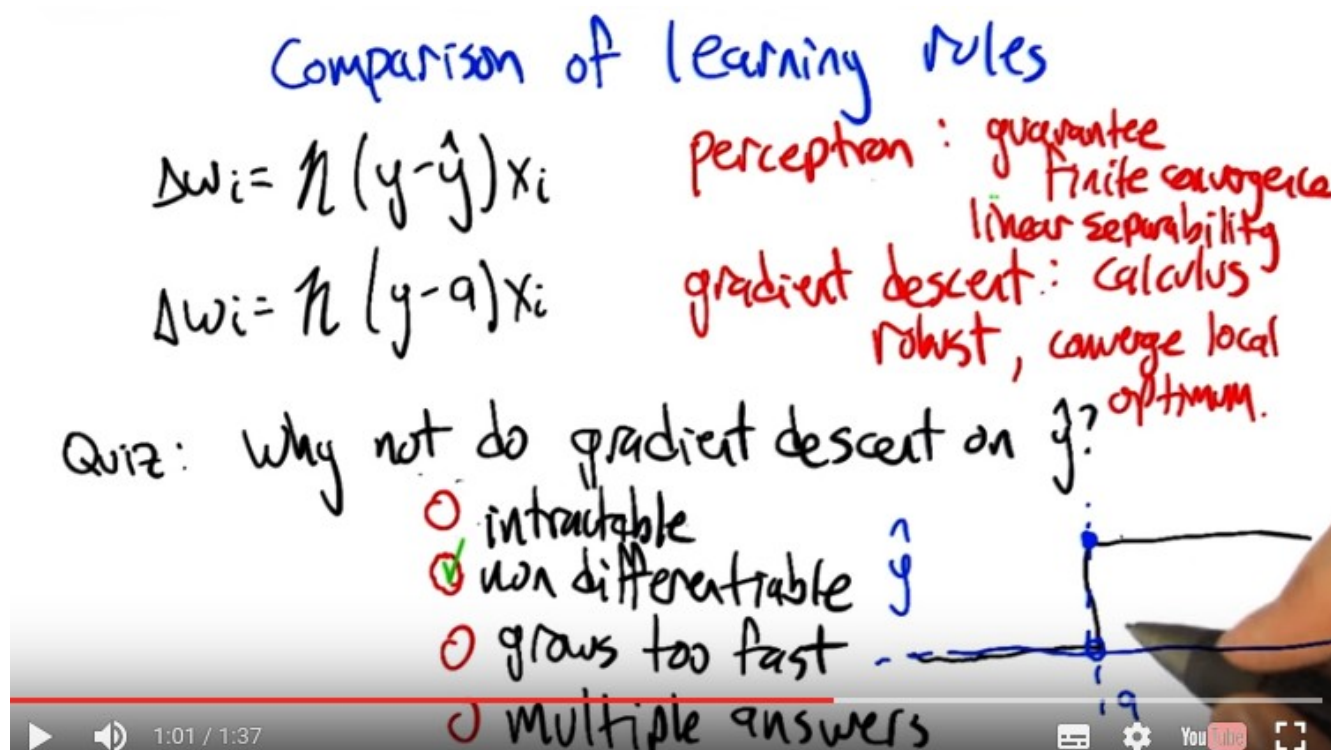 Comparison of learning rules
Δwi = η (y-ŷ) xi
perceptron : guarantee
finite convergence
linear separability
Δwi = η (y-a) xi
gradient descent : calculus
robust, converge local
optimum.
Quiz: Why not do gradient descent on ŷ?
intractable
non differentiable
grows too fast
multiple answers
ŷ
a
1:01 / 1:37
YouTube